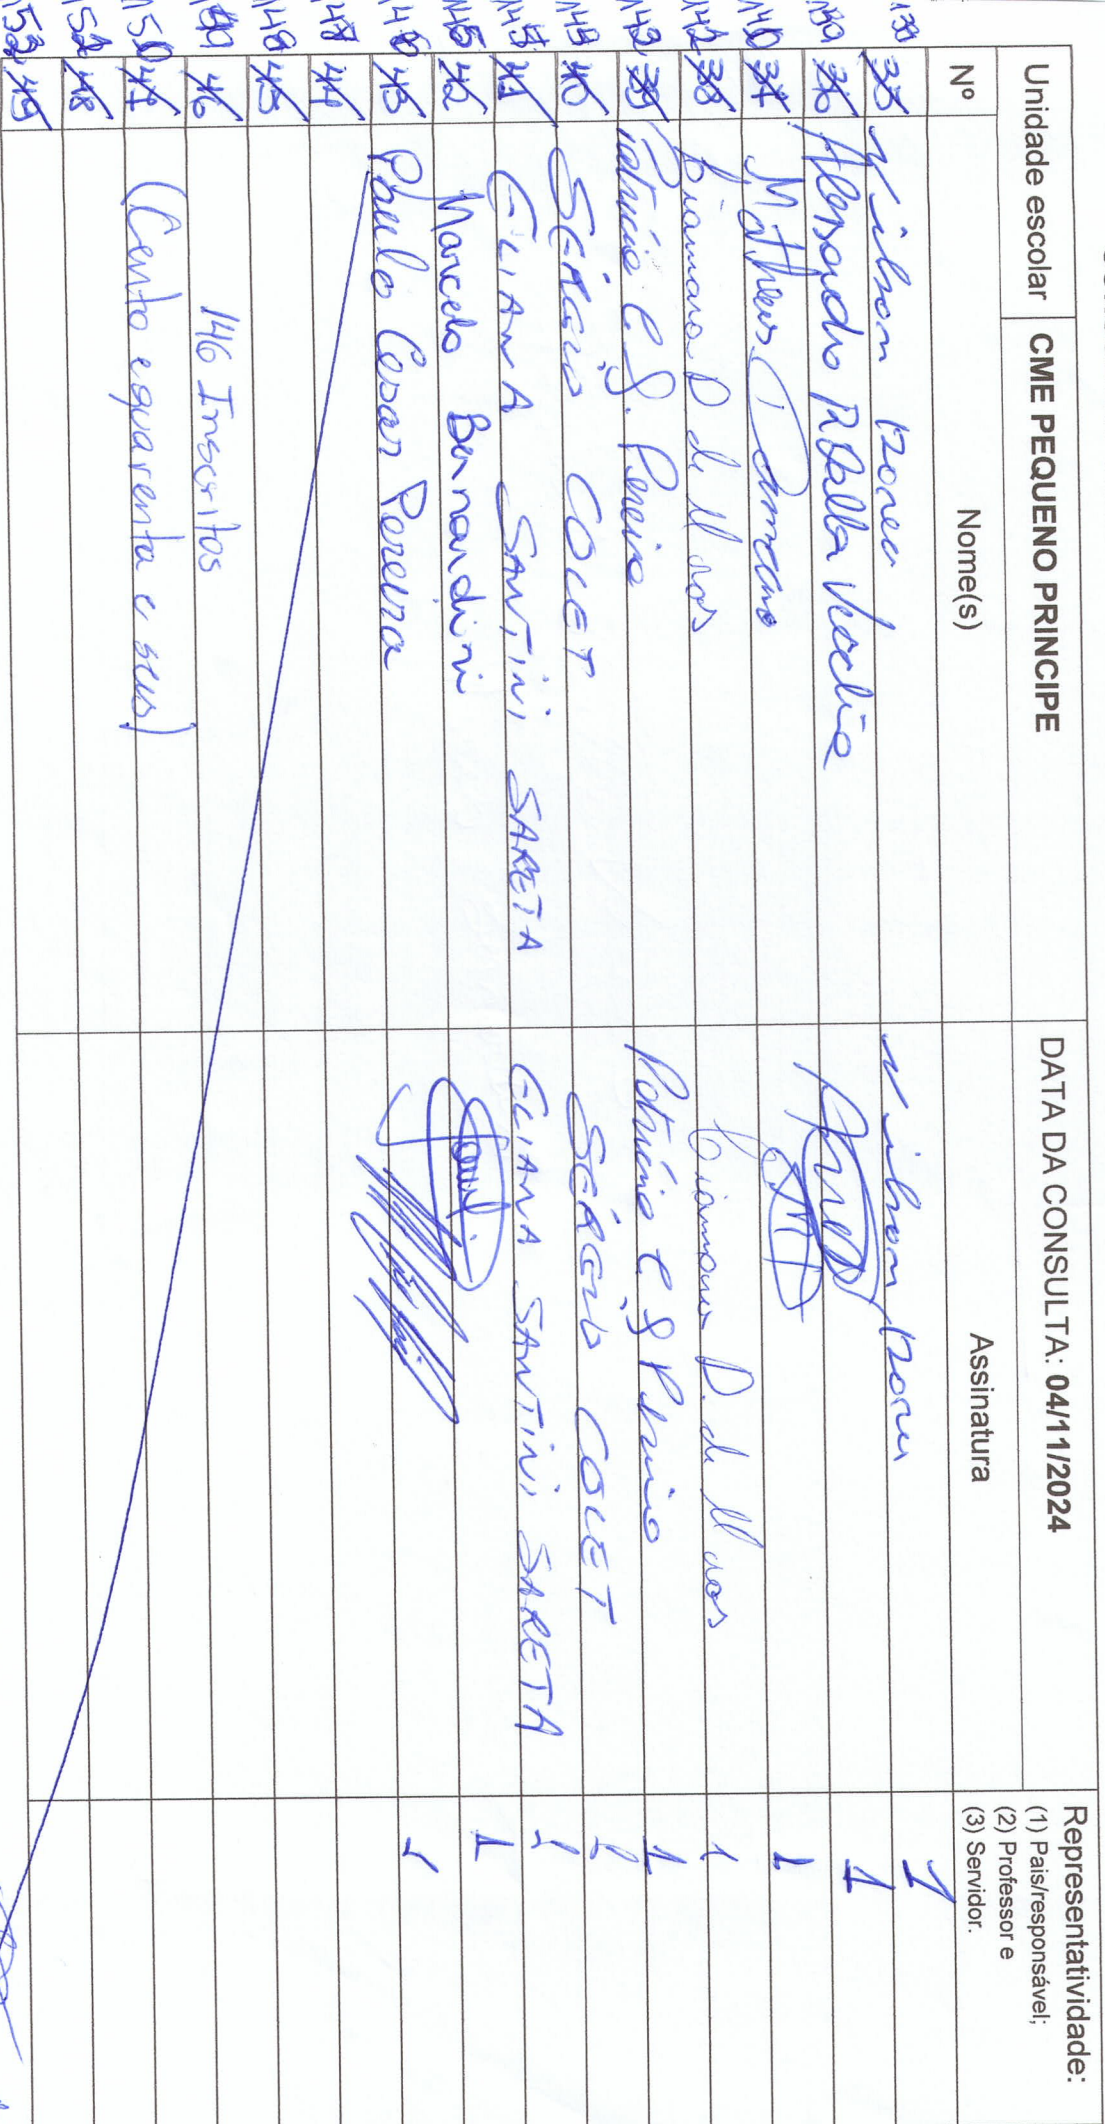 Unidade escolar CME PEQUENO PRINCIPE DATA DA CONSULTA: 04/11/2024 Representatividade:
(1) Pais/responsável;
(2) Professor e
(3) Servidor.
Nº Nome(s) Assinatura
138 35 Nilson 1
139 36 Alessandro R Dalla Vecchia 1
140 37 Matheus 1
38 D. de 1
142 39 Patrícia C. S. Pereira Patrícia C S Pereira 1
143 40 SÉRGIO COLET SÉRGIO COLET 1
41 ELIANA SANTINI SARETA ELIANA SANTINI SARETA 1
145 42 Marcelo Bernardini 1
146 43 Paulo Cesar Pereira 1
147 44
148 45
149 46 146 Inscritos
150 47 (Cento e quarenta e seis)
152 48
153 49